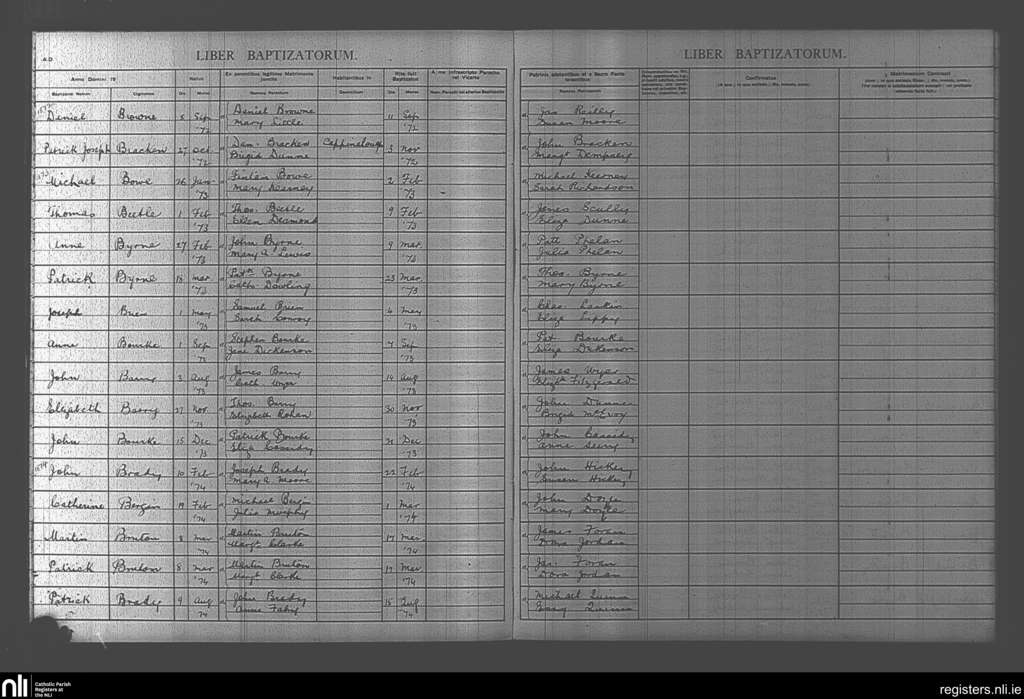 LIBER BAPTIZATORUM.
LIBER BAPTIZATORUM.
A.D
Anno Domini 19
Natus
Ex parentibus legitimo Matrimonio junctis
Habitantibus in
Rite fuit Baptizatus
A me infrascripto Parocho vel Vicario
Patrinis adstantibus et a Sacro Fonte levantibus
Confirmatus
Matrimonium Contraxit
Baptizati Nomen
Cognomen
Die
Mense
Nomina Parentum
Domicilium
Die
Mense
Nom. Parochi vel alterius Baptizantis
Nomina Patrinorum
1872
Daniel Browne 5 Sep '72 Daniel Browne 11 Sep '72 Jas Reilly
Mary Little Susan Moore
Patrick Joseph Bracken 27 Oct '72 Dan. Bracken Cappinalough 3 Nov '72 John Bracken
Brigid Dunne Margt Dempsey
1873
Michael Bowe 26 Jan '73 Fintan Bowe 2 Feb '73 Michael Kearney
Mary Kearney Sarah Richardson
Thomas Beetle 1 Feb '73 Thos. Beetle 9 Feb '73 James Scully
Ellen Desmond Eliza Dunne
Anne Byrne 27 Feb '73 John Byrne 9 Mar. '73 Patt Phelan
Mary A Lewis Julia Phelan
Patrick Byrne 18 Mar. '73 Patk Byrne 23 Mar. '73 Thos. Byrne
Cath. Dowling Mary Byrne
Joseph Brien 1 May '73 Samuel Brien 4 May '73 Chas. Larkin
Sarah Conroy Eliza Lippy
Anne Bourke 1 Sep 73 Stephen Bourke 7 Sep '73 Pat Bourke
Jane Dickenson Eliza Dickenson
John Barry 3 Aug '73 James Barry 14 Aug '73 James Wyer
Cath Wyer Elizth Fitzgerald
Elizabeth Barry 27 Nov. '73 Thos. Barry 30 Nov '73 John Dunne
Elizabeth Rohan Brigid McEvoy
John Bourke 15 Dec '73 Patrick Bourke 21 Dec '73 John Cassidy
Eliza Cassidy Anne Seery
1874
John Brady 10 Feb '74 Joseph Brady 22 Feb '74 John Hickey
Mary A Moore Susan Hickey
Catherine Bergin 19 Feb '74 Michael Bergin 1 Mar '74 John Doyle
Julia Murphy Mary Doyle
Martin Bruton 8 Mar '74 Martin Bruton 17 Mar '74 James Foran
Margt Clarke Dora Jordan
Patrick Bruton 8 Mar '74 Martin Bruton 17 Mar '74 Jas. Foran
Margt Clarke Dora Jordan
Patrick Brady 9 Aug 74 John Brady 15 Aug 74 Michael Quinn
Anne Fahey Quinn
nli
Catholic Parish
Registers at
the NLI
registers.nli.ie